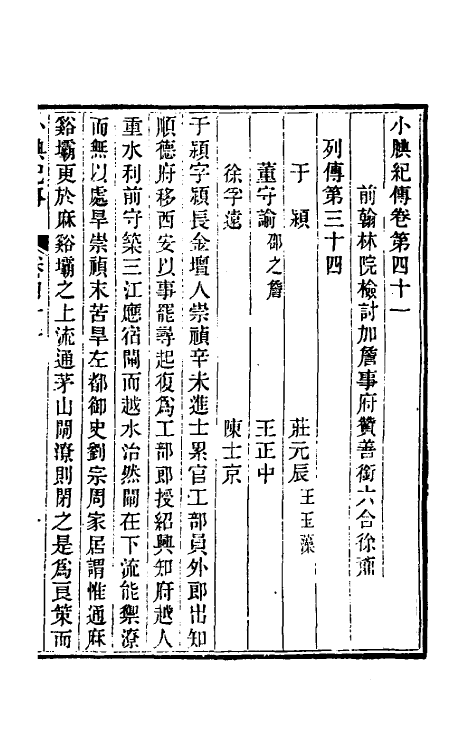 小腆紀傳卷第四十一
前翰林院檢討加詹事府贊善銜六合徐鼒
列傳第三十四
于潁 莊元辰 王玉藻
董守諭 邵之詹 王正中
徐孚遠 陳士京
于潁字潁長金壇人崇禎辛未進士累官工部員外郎出知
順德府移西安以事罷尋起復爲工部郎授紹興知府越人
重水利前守築三江應宿閘而越水治然閘在下流能禦潦
而無以處旱崇禎末苦旱左都御史劉宗周家居謂惟通麻
谿壩更於麻谿壩之上流通茅山閘潦則閉之是爲良策而